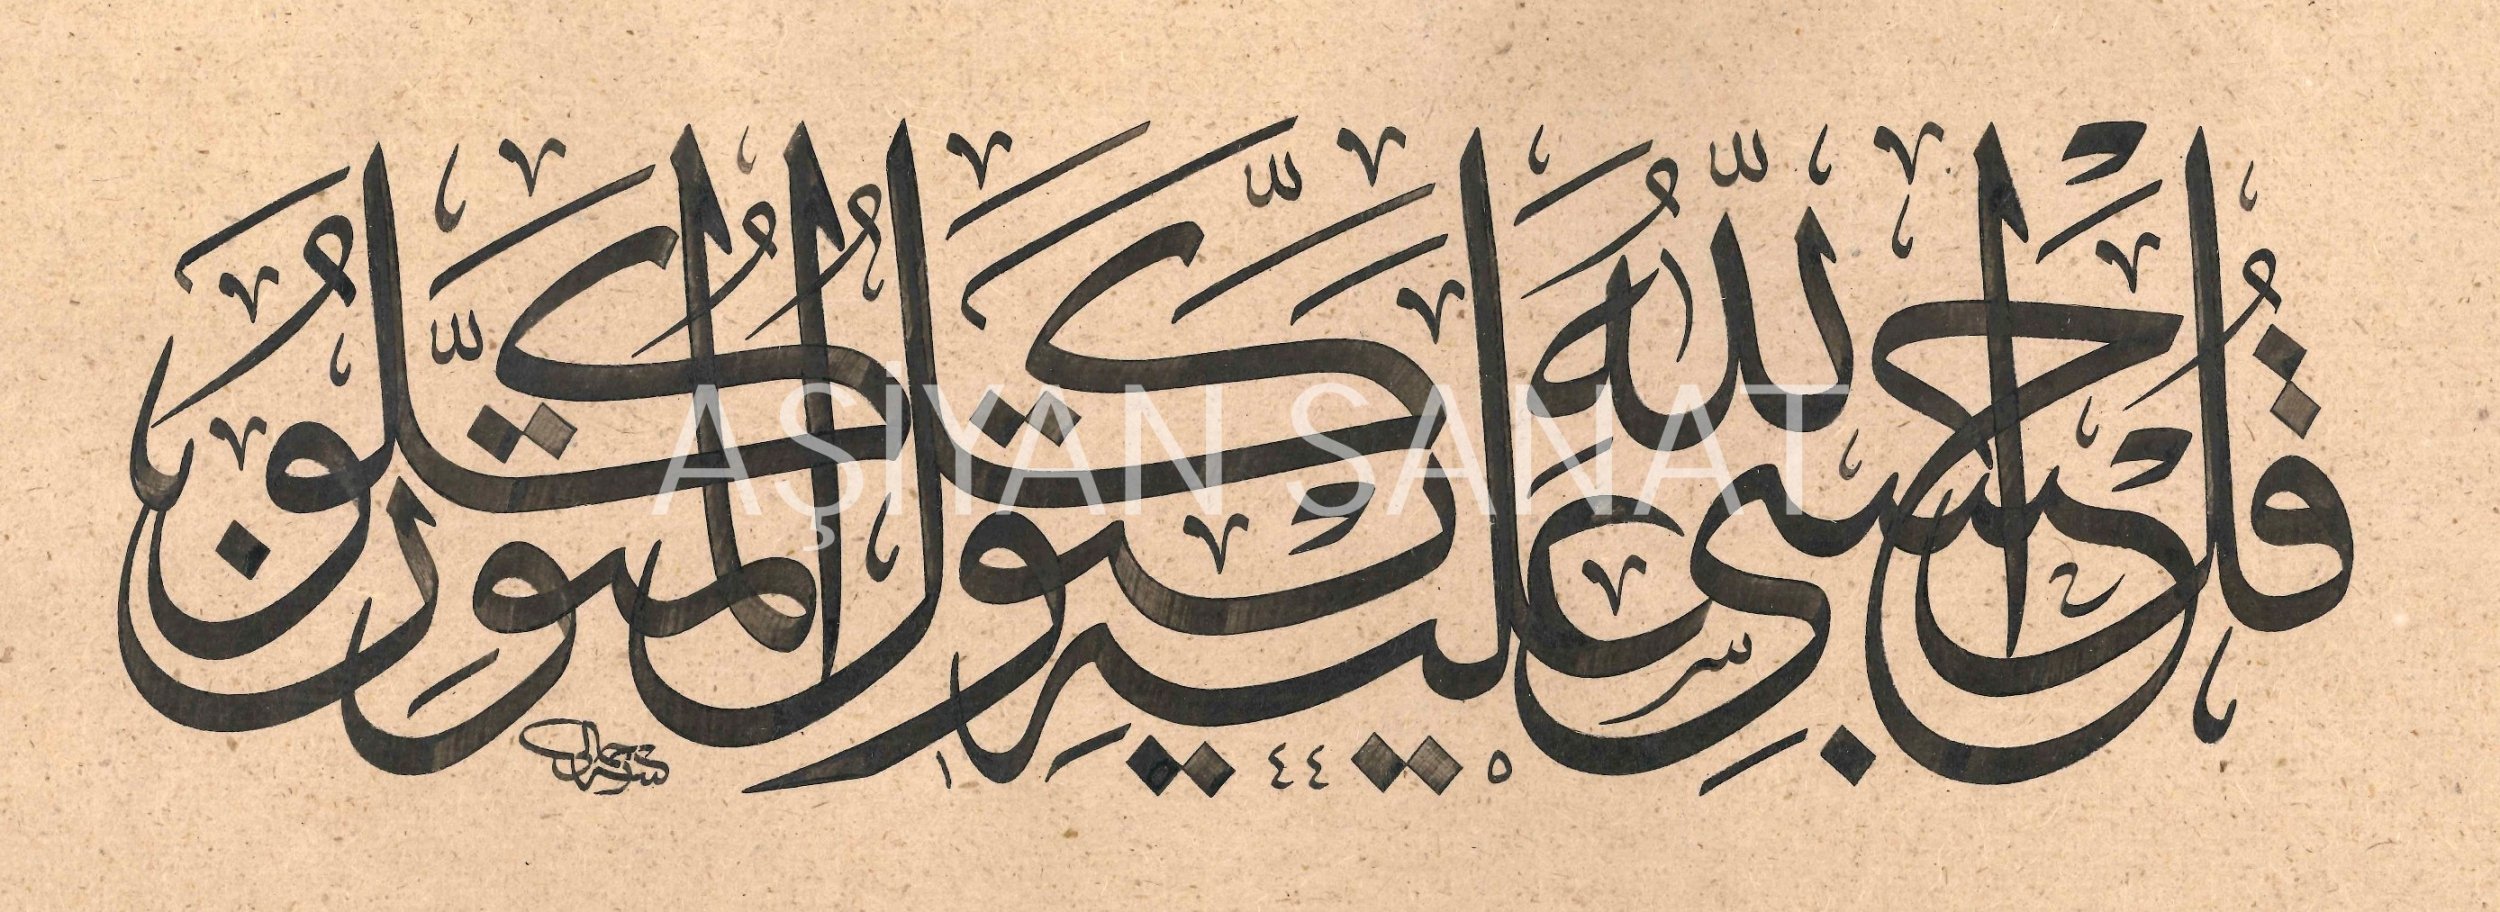 قُلْ حَسْبِيَ اللّٰهُ عَلَيْهِ يَتَوَكَّلُ الْمُتَوَكِّلُونَ
AŞİYAN SANAT
١٤٤٥